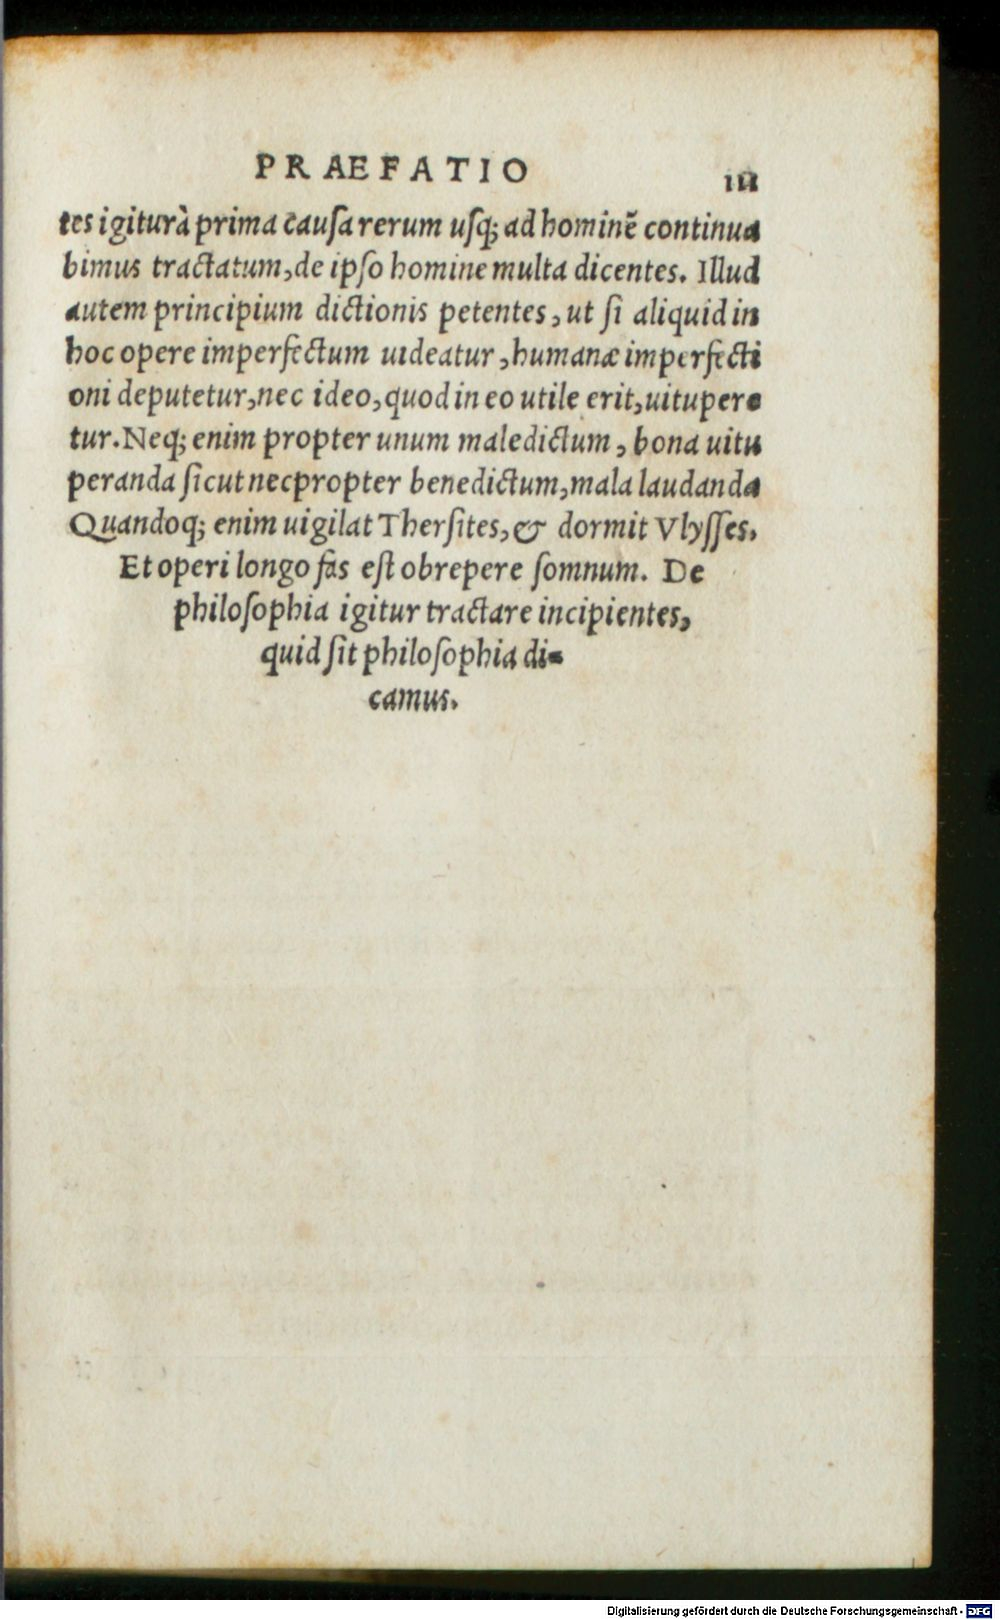 PRAEFATIO
III
tes igitur à prima causa rerum usq; ad hominē continua
bimus tractatum, de ipso homine multa dicentes. Illud
autem principium dictionis petentes, ut si aliquid in
hoc opere imperfectum uideatur, humanæ imperfecti
oni deputetur, nec ideo, quod in eo utile erit, uitupere
tur. Neq; enim propter unum maledictum, bona uitu
peranda sicut nec propter benedictum, mala laudanda
Quandoq; enim uigilat Thersites, & dormit Vlysses.
Et operi longo fas est obrepere somnum. De
philosophia igitur tractare incipientes,
quid sit philosophia di-
camus.
Digitalisierung gefördert durch die Deutsche Forschungsgemeinschaft - DFG